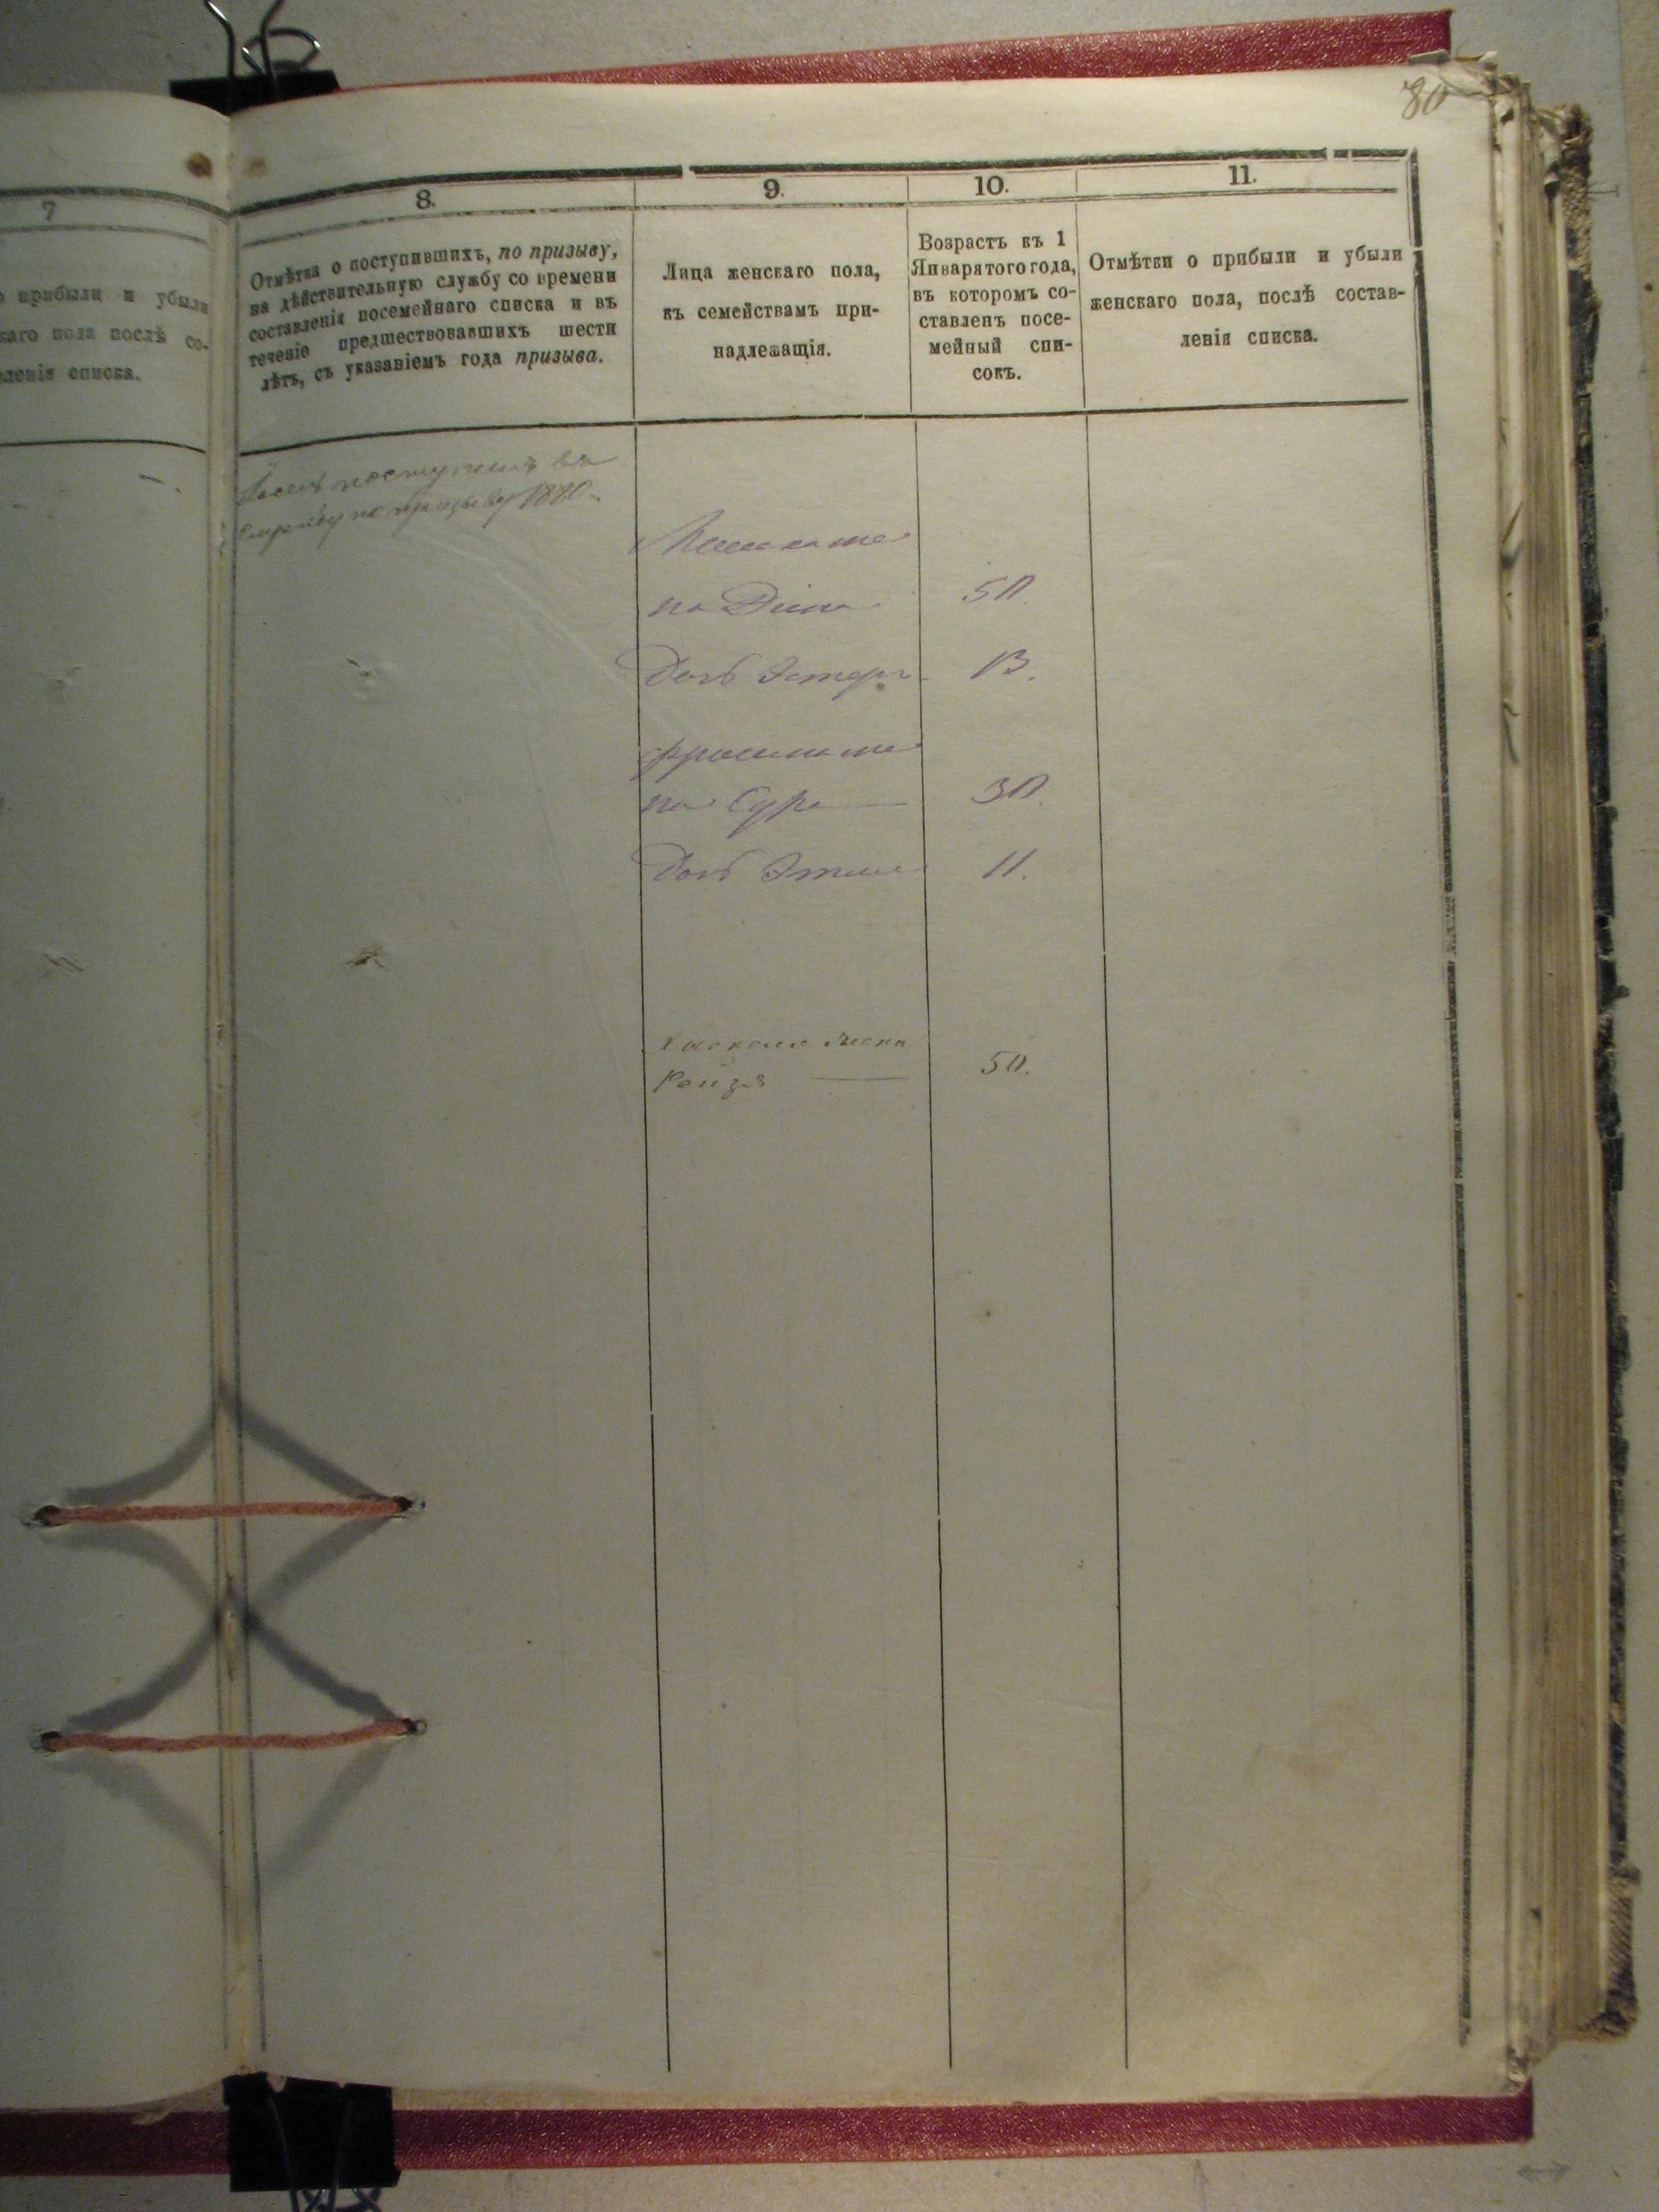 80
7
8.
9.
10.
11.
о прибыли и убыли
скаго пола послѣ со-
вленія списка.
Отмѣтка о поступившихъ, по призыву,
на дѣйствительную службу со времени
составленія посемейнаго списка и въ
теченіе предшествовавшихъ шести
лѣтъ, съ указаніемъ года призыва.
Лица женскаго пола,
къ семействамъ при-
надлежащія.
Возрастъ къ 1
Января того года,
въ которомъ со-
ставленъ посе-
мейный спи-
сокъ.
Отмѣтки о прибыли и убыли
женскаго пола, послѣ состав-
ленія списка.
поступилъ въ
службу по призыву
50.
Дочь Эстеръ 13.
Сура 30.
Дочь 11.
жена
50.